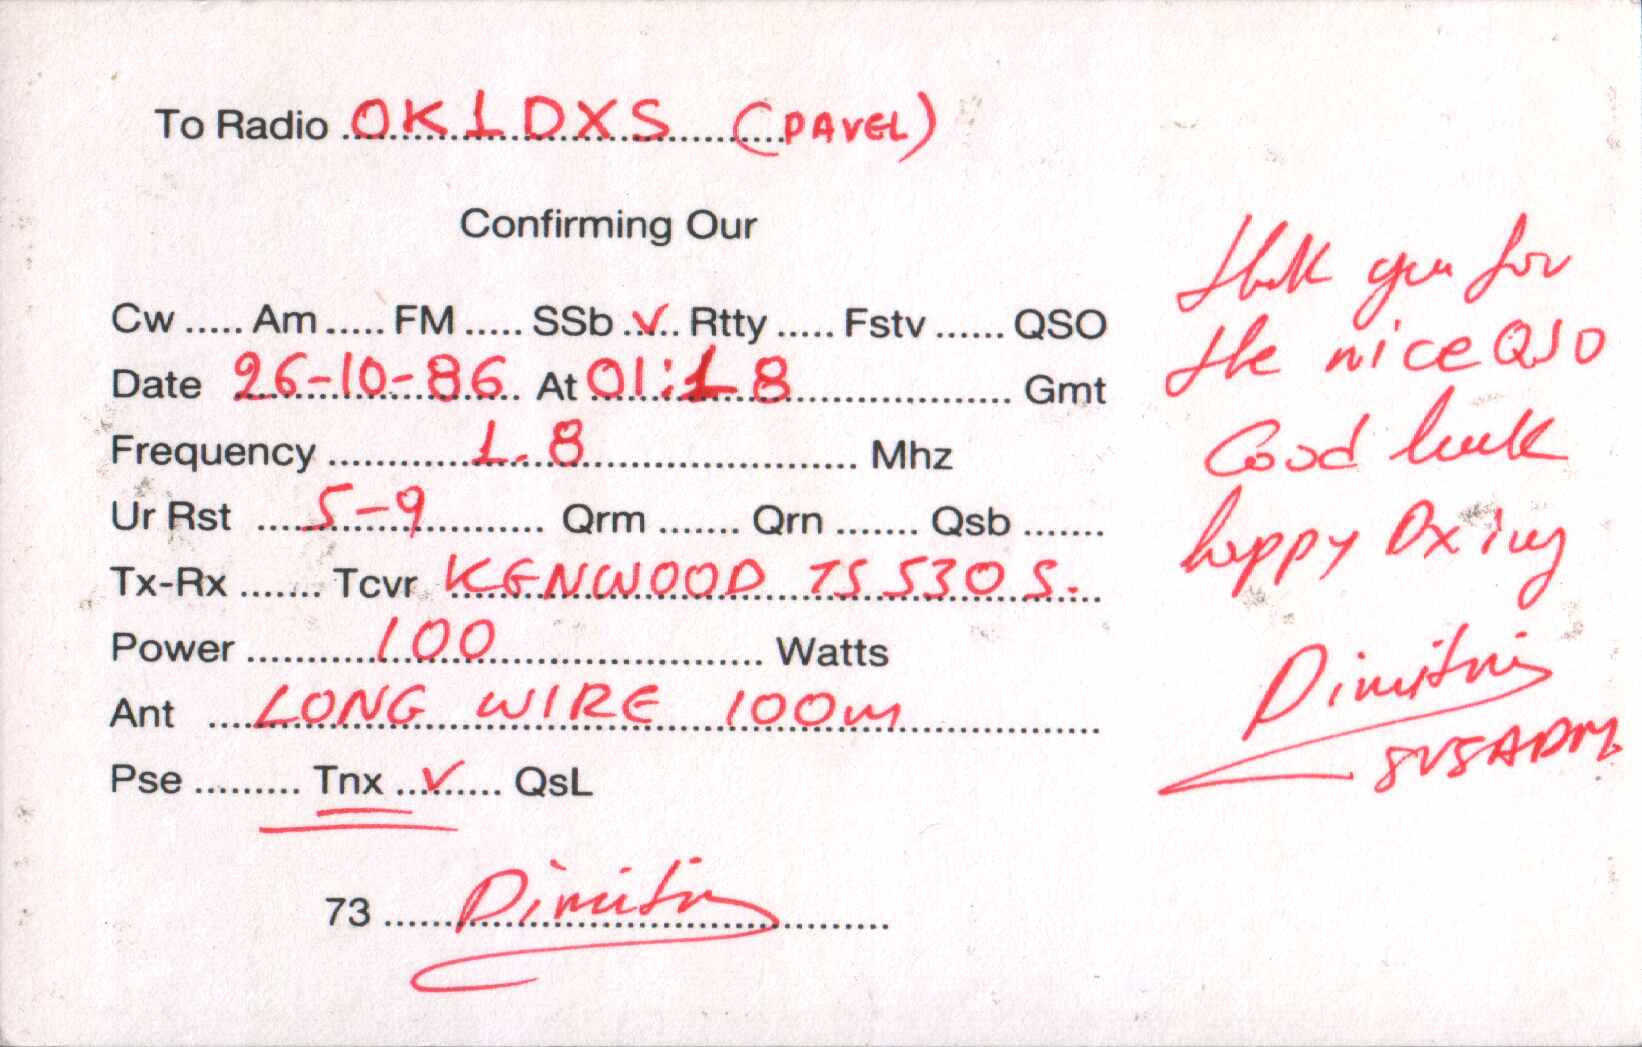 To Radio OK1DXS (PAVEL)
Confirming Our
Cw ..... Am ..... FM ..... SSb .✓.. Rtty ..... Fstv ...... QSO
Date 26-10-86 At 01:18 Gmt
Frequency 1.8 Mhz
Ur Rst 5-9 Qrm ....... Qrn ....... Qsb .......
Tx-Rx ....... Tcvr KENWOOD TS 530 S.
Power 100 Watts
Ant LONG WIRE 100m
Pse ......... Tnx ..✓..... QsL
73 Dimitris
Thank you for
the nice QSO
Good luck
happy Dxing
Dimitris
SV8ADM